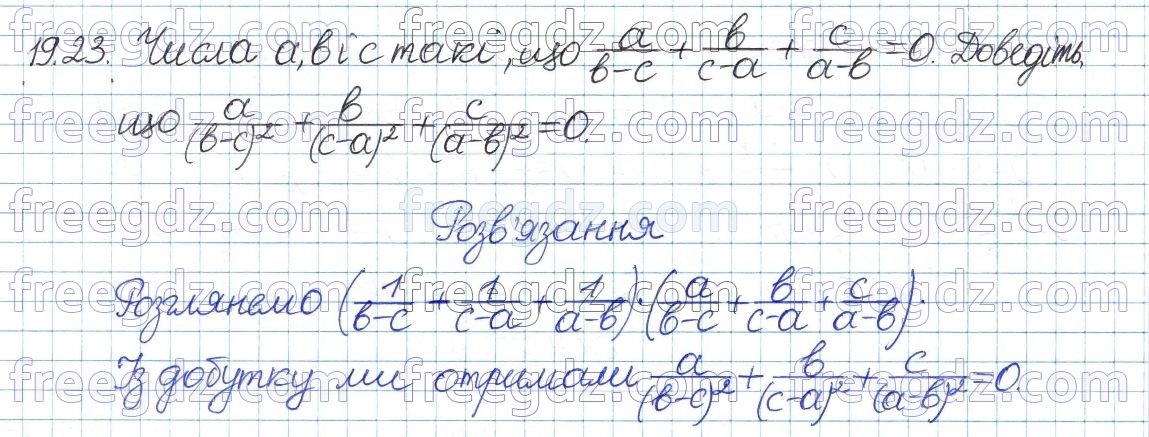 19.23. Числа a, b і c такі, що a/(b-c) + b/(c-a) + c/(a-b) = 0. Доведіть,
що a/(b-c)² + b/(c-a)² + c/(a-b)² = 0.
Розв'язання
Розглянемо (1/(b-c) + 1/(c-a) + 1/(a-b)) · (a/(b-c) + b/(c-a) + c/(a-b)).
Із добутку ми отримали a/(b-c)² + b/(c-a)² + c/(a-b)² = 0.
freegdz.com